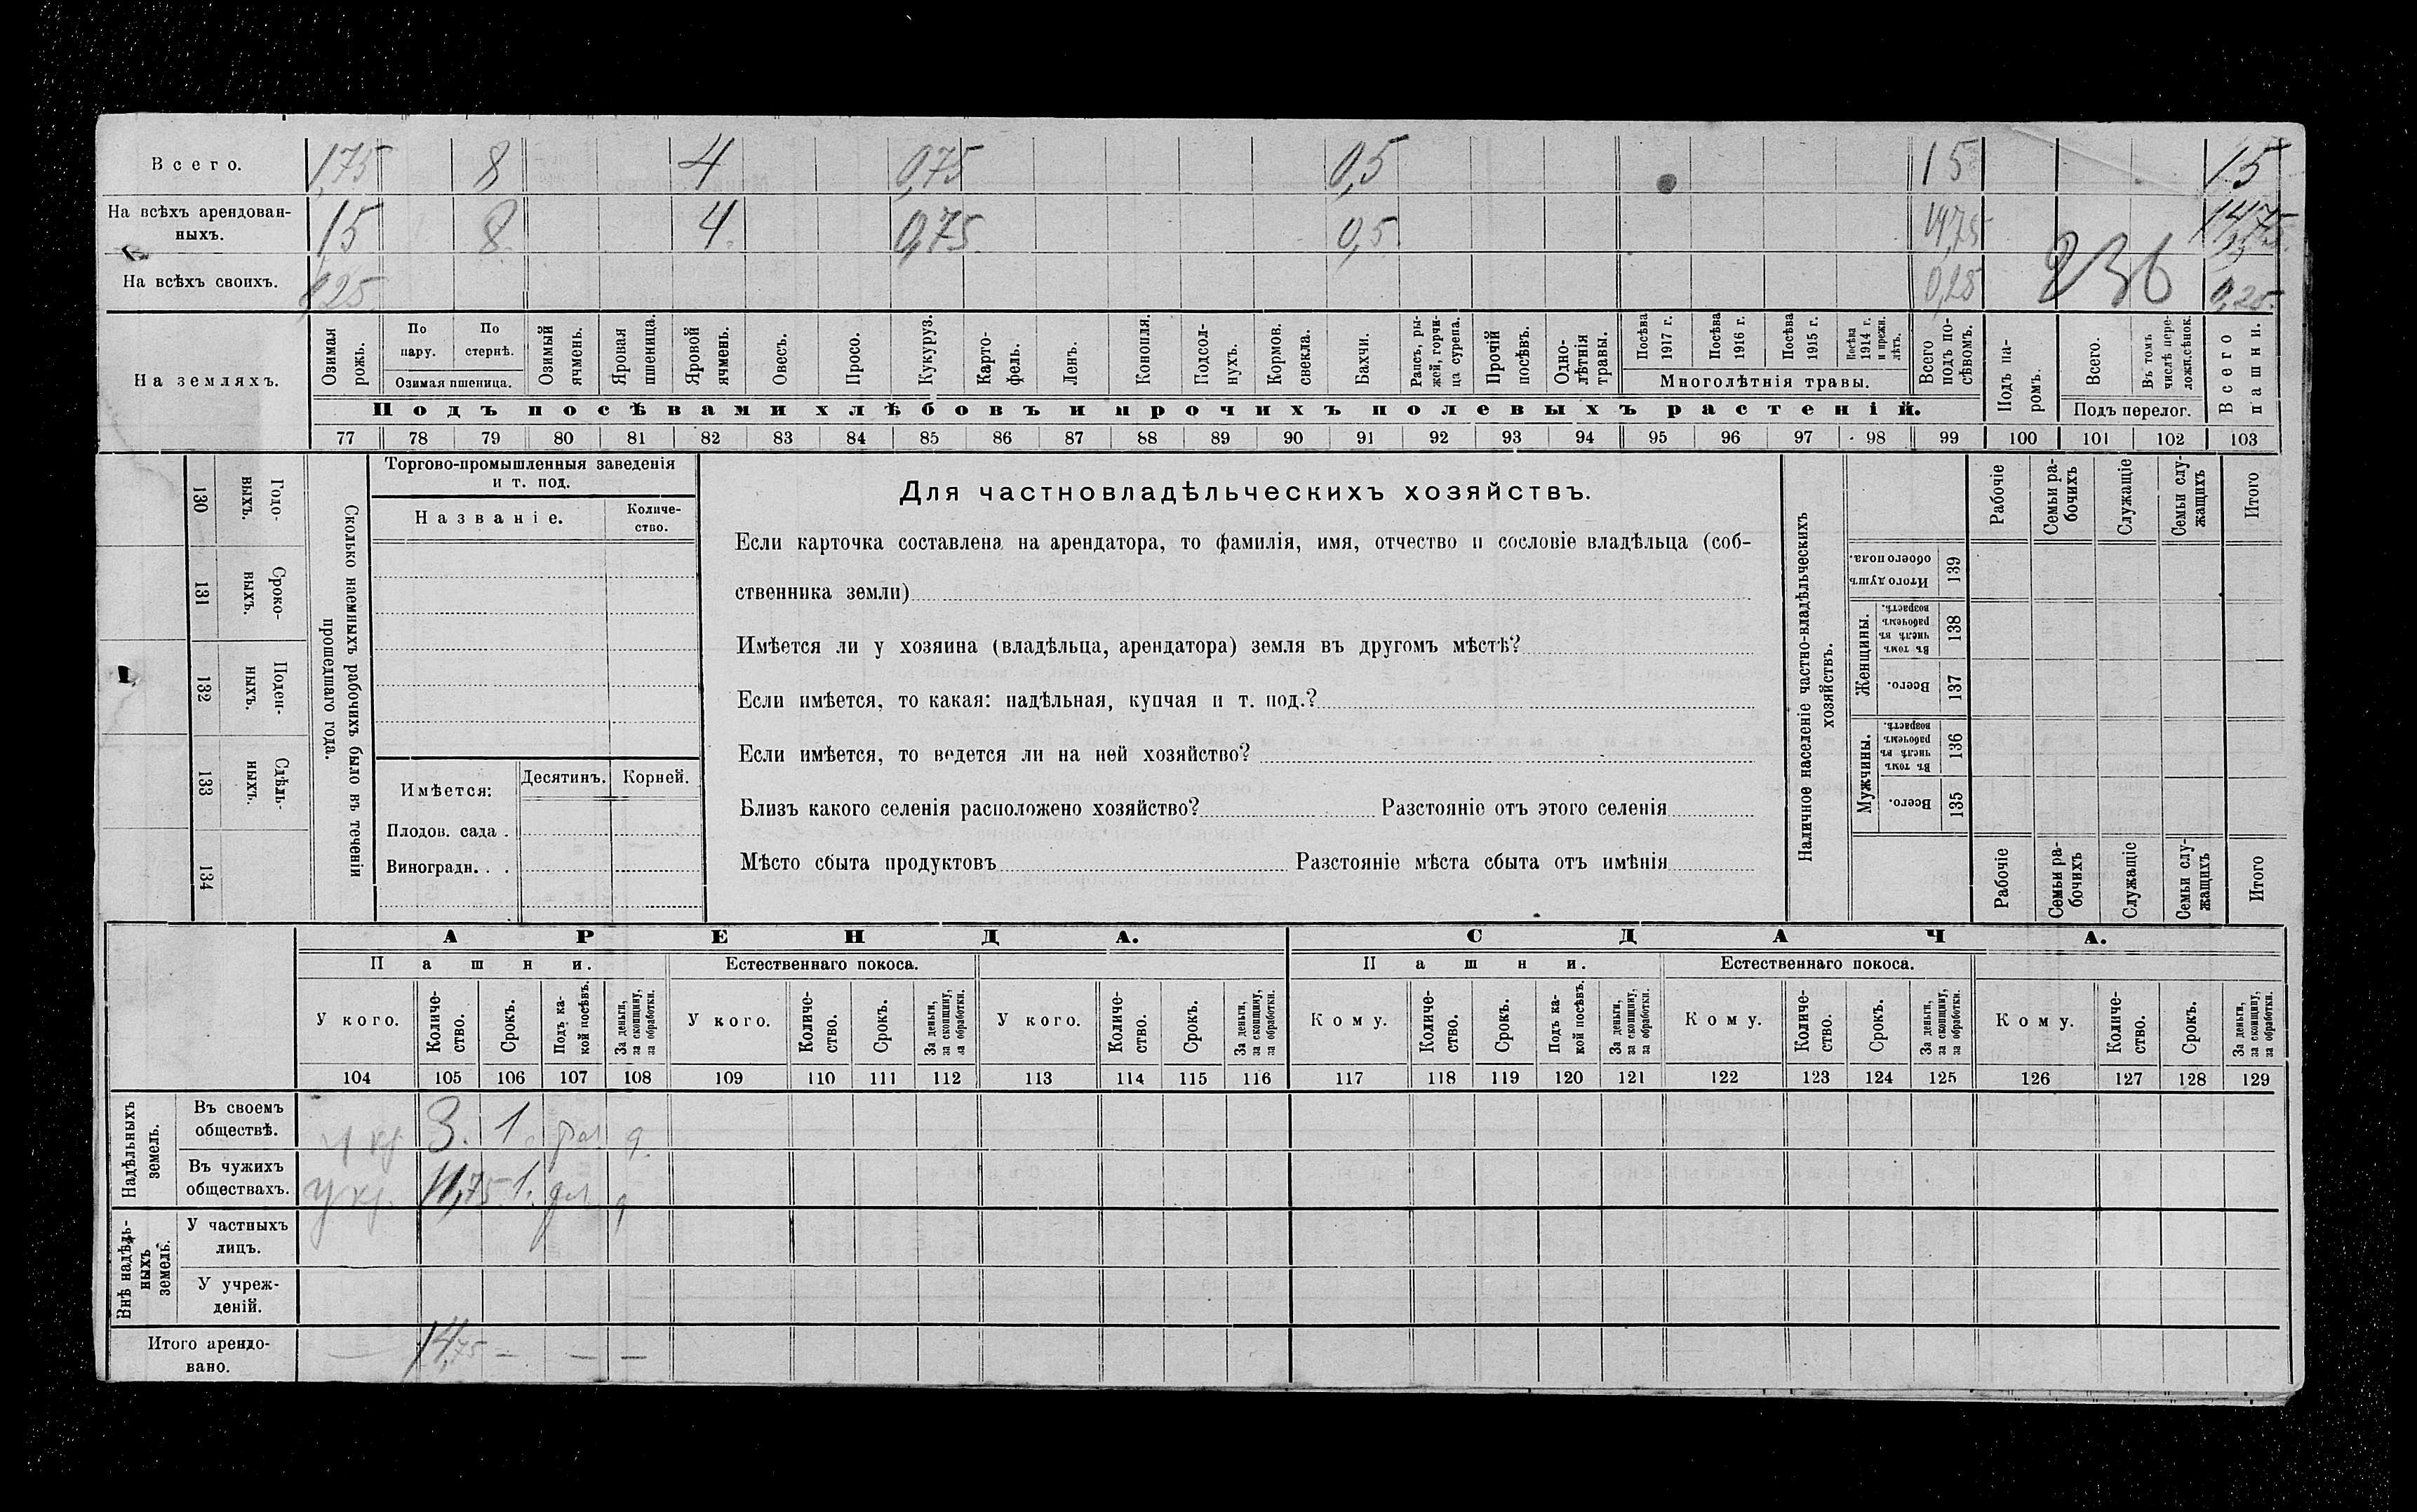 Всего. 1,75 8 4 0,75 0,5 15 15
На всѣхъ арендован-
ныхъ. 15 8. 4. 0,75. 0,5. 14,75 14,75
236
На всѣхъ своихъ. 0,25 0,25 0,25.
На земляхъ.
Озимая рожь.
По пару.
По стернѣ.
Озимая пшеница.
Озимый ячмень.
Яровая пшеница.
Яровой ячмень.
Овесъ.
Просо.
Кукуруз.
Карто-
фель.
Ленъ.
Конопля.
Подсол-
нухъ.
Кормов. свекла.
Бахчи.
Рапсъ, ры-
жей, горчи-
ца сурепа.
Прочій посѣвъ.
Одно-
лѣтнія травы.
Посѣва 1917 г.
Посѣва 1916 г.
Посѣва 1915 г.
Посѣва 1914 г. и прежн. лѣтъ.
Многолѣтнія травы.
Всего подъ по-
сѣвомъ.
Подъ па-
ромъ.
Всего.
Въ томъ числѣ пере-
лож.сѣнок.
Подъ перелог.
Всего пашни.
Подъ посѣвами хлѣбовъ и прочихъ полевыхъ растеній.
77 78 79 80 81 82 83 84 85 86 87 88 89 90 91 92 93 94 95 96 97 98 99 100 101 102 103
Годо-
выхъ.
130
Сроко-
выхъ.
131
Поден-
ныхъ.
132
Сдѣль-
ныхъ.
133
134
Сколько наемныхъ рабочихъ было въ теченіи
прошедшаго года.
Торгово-промышленныя заведенія
и т. под.
Названіе.
Количе-
ство.
Имѣется: Десятинъ. Корней.
Плодов. сада .
Виноградн. . .
Для частновладѣльческихъ хозяйствъ.
Если карточка составлена на арендатора, то фамилія, имя, отчество и сословіе владѣльца (соб-
ственника земли)
Имѣется ли у хозяина (владѣльца, арендатора) земля въ другомъ мѣстѣ?
Если имѣется, то какая: надѣльная, купчая и т. под.?
Если имѣется, то ведется ли на ней хозяйство?
Близъ какого селенія расположено хозяйство? Разстояніе отъ этого селенія
Мѣсто сбыта продуктовъ Разстояніе мѣста сбыта отъ имѣнія
Наличное населеніе частно-владѣльческихъ
хозяйствъ.
Рабочіе
Семьи ра-
бочихъ
Служащіе
Семьи слу-
жащихъ
Итого
Итого душъ обоего пола.
139
Женщины.
Въ томъ числѣ въ рабочемъ возрастѣ.
138
Всего.
137
Мужчины.
Въ томъ числѣ въ рабочемъ возрастѣ.
136
Всего.
135
Рабочіе
Семьи ра-
бочихъ
Служащіе
Семьи слу-
жащихъ
Итого
АРЕНДА. СДАЧА.
Пашни. Естественнаго покоса. Пашни. Естественнаго покоса.
У кого.
Количе-
ство.
Срокъ.
Подъ ка-
кой посѣвъ.
За деньги, за скопщину, за обработки.
У кого.
Количе-
ство.
Срокъ.
За деньги, за скопщину, за обработки.
У кого.
Количе-
ство.
Срокъ.
За деньги, за скопщину, за обработки.
Кому.
Количе-
ство.
Срокъ.
Подъ ка-
кой посѣвъ.
За деньги, за скопщину, за обработки.
Кому.
Количе-
ство.
Срокъ.
За деньги, за скопщину, за обработки.
Кому.
Количе-
ство.
Срокъ.
За деньги, за скопщину, за обработки.
104 105 106 107 108 109 110 111 112 113 114 115 116 117 118 119 120 121 122 123 124 125 126 127 128 129
Надѣльныхъ земель.
Въ своемъ
обществѣ. у кр. 3. 1.
Въ чужихъ
обществахъ. у кр. 11,75 1.
Внѣ надѣль-
ныхъ земель.
У частныхъ
лицъ.
У учреж-
деній.
Итого арендо-
вано. — 14,75 — — —